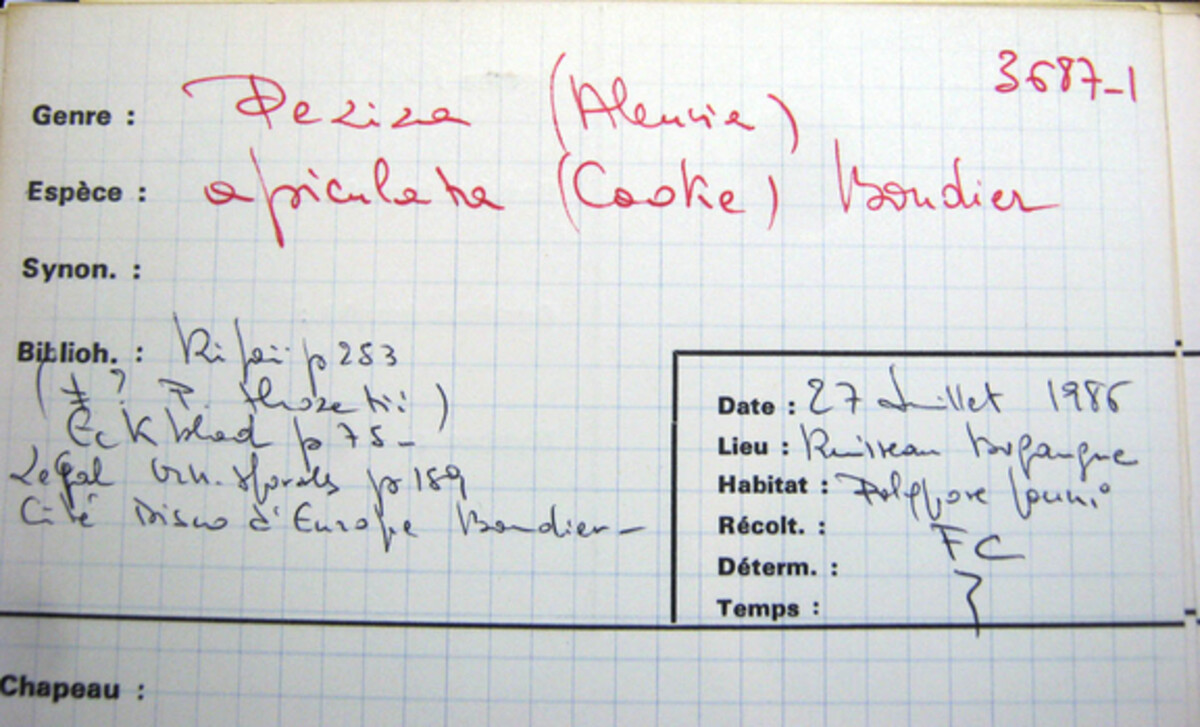 3687-1
Genre : Peziza (Aleuria)
Espèce : apiculata (Cooke) Boudier
Synon. :
Biblioh. : Rifai p 253
(≠ ? P. thozetii)
Eckblad p 75 -
Legal Orn. Spores p 189
Cité Disco d'Europe Boudier -
Date : 27 Juillet 1986
Lieu : Ruisseau
Habitat : Polypore pourri
Récolt. : FC
Déterm. :
Temps :
Chapeau :